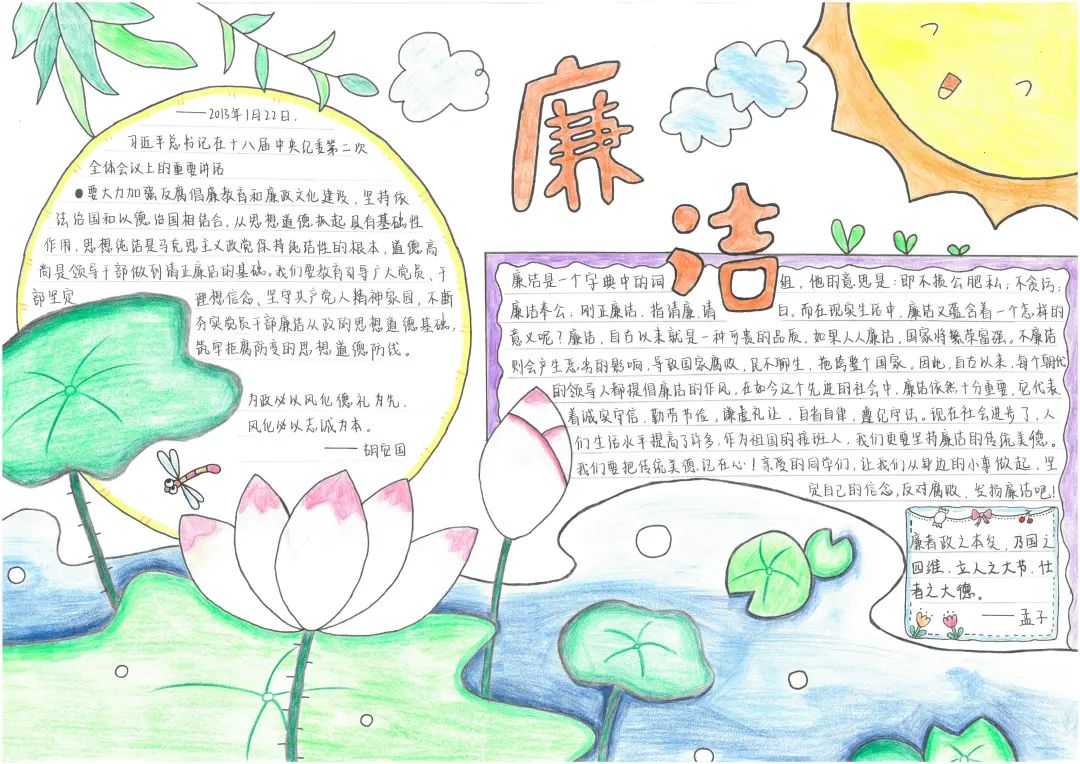 廉
洁
——2013年1月22日.
习近平总书记在十八届中央纪委第二次
全体会议上的重要讲话
●要大力加强反腐倡廉教育和廉政文化建设，坚持依
法治国和以德治国相结合。从思想道德抓起具有基础性
作用，思想纯洁是马克思主义政党保持纯洁性的根本，道德高
尚是领导干部做到清正廉洁的基础。我们要教育引导广大党员、干
部坚定 理想信念、坚守共产党人精神家园，不断
夯实党员干部廉洁从政的思想道德基础，
筑牢拒腐防变的思想道德防线。
为政必以风化德礼为先，
风化必以志诚为本。
——胡宏国
廉洁是一个字典中的词 组，他的意思是：即不损公肥私；不贪污；
廉洁奉公；刚正廉洁，指清廉，清 白。而在现实生活中，廉洁又蕴含着一个怎样的
意义呢？廉洁，自古以来就是一种可贵的品质。如果人人廉洁，国家将繁荣富强。不廉洁
则会产生恶劣的影响，导致国家腐败，民不聊生，拖垮整个国家。因此，自古以来，每个朝代
的领导人都提倡廉洁的作风。在如今这个先进的社会中，廉洁依然十分重要，它代表
着诚实守信，勤劳节俭，谦虚礼让，自省自律，遵纪守法。现在社会进步了，人
们生活水平提高了许多，作为祖国的接班人，我们更要坚持廉洁的传统美德。
我们要把传统美德记在心！亲爱的同学们，让我们从身边的小事做起，坚
定自己的信念，反对腐败，发扬廉洁吧！
廉者政之本矣，乃国之
四维，立人之大节，仕
者之大德。
——孟子